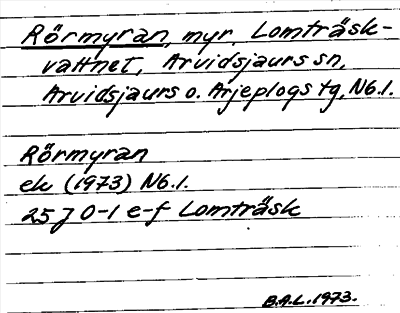 Rörmyran, myr, Lomträsk-
vattnet, Arvidsjaurs sn,
Arvidsjaurs o. Arjeplogs tg, N6.1.
Rörmyran
ek (1973) N6.1.
25 J 0-1 e-f Lomträsk
B.A.L. 1973.